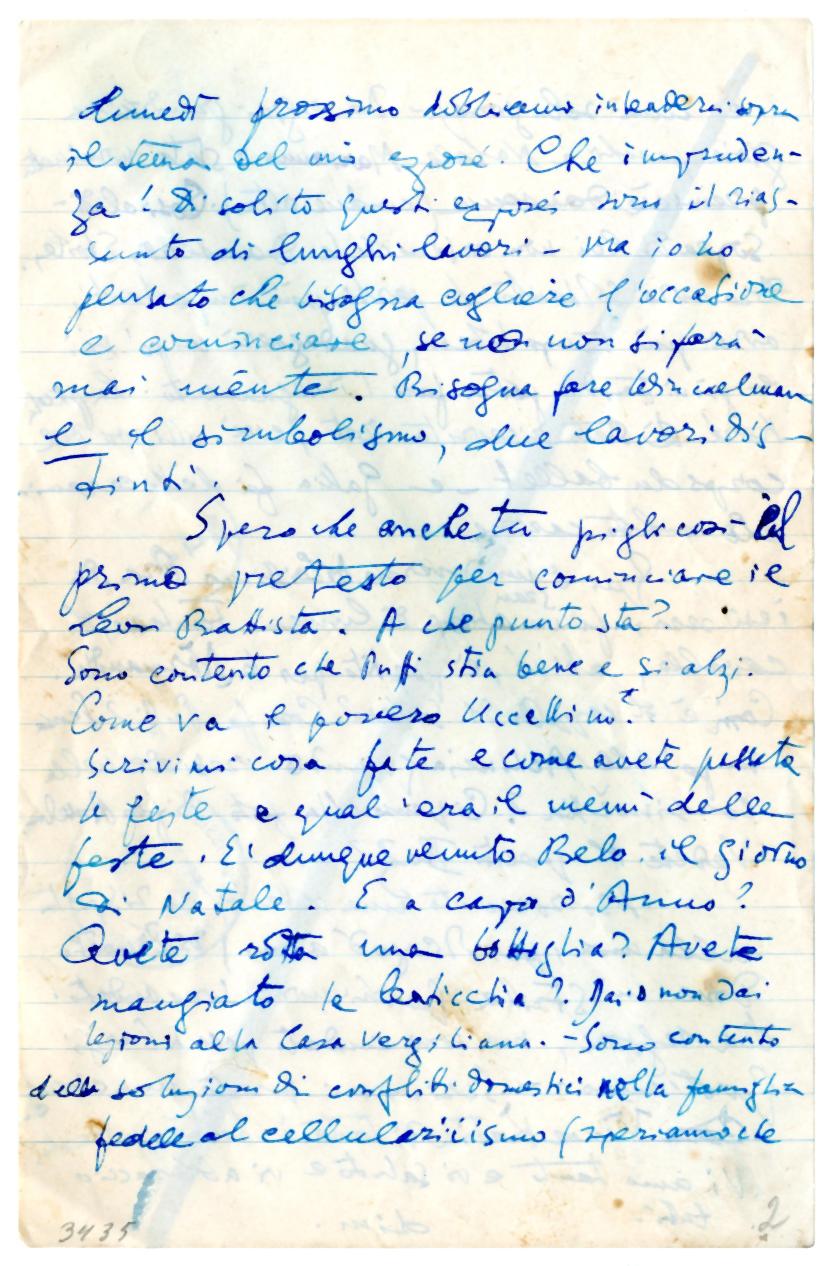 Lunedì prossimo dobbiamo intendersi sopra
il tema del mio exposé. Che impruden-
za! Di solito questi exposés sono il rias-
sunto di lunghi lavori - ma io ho
pensato che bisogna cogliere l'occasione
e cominciare, se no non si farà
mai niente. Bisogna fare Winckelmann
e il simbolismo, due lavori dis-
tinti.
Spero che anche tu pigli così il
primo pretesto per cominciare il
Leon Battista. A che punto sta?
Sono contento che Puffi stia bene e si alzi.
Come va il povero Uccellino?
Scrivimi cosa fate e come avete passato
le feste e qual'era il menù delle
feste. E' dunque venuto Belo il giorno
di Natale. E a capo d'Anno?
Avete rotta una bottiglia? Avete
mangiato le lenticchia? Dai o non dai
lezioni alla Casa Vergiliana. - Sono contento
della soluzione di conflitti domestici nella famiglia
fedele al (speriamo che
3435
2